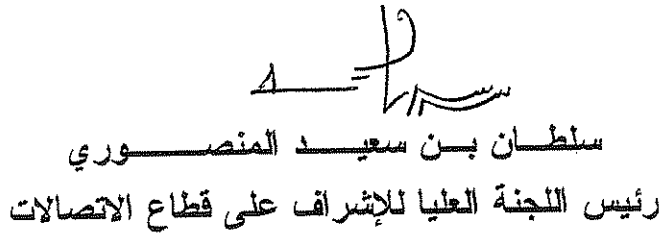 سلطــان بــن سعيــد المنصــــوري
رئيس اللجنة العليا للإشراف على قطاع الاتصالات